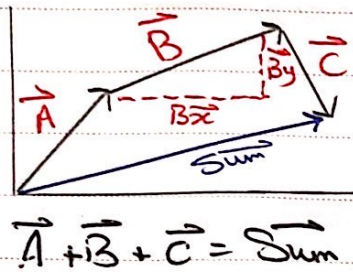 B
By
C
A
Bx
Sum
A + B + C = Sum